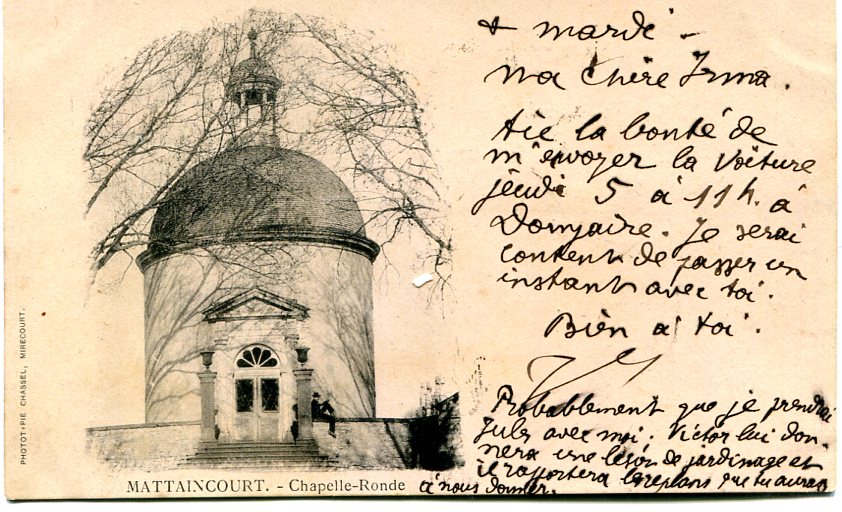 + mardi -
ma chère Irma.
Aie la bonté de
m'envoyer la Voiture
jeudi 5 à 11h. à
Domjaire. Je serai
content de passer un
instant avec toi.
Bien à toi.
Probablement que je prendrai
Jules avec moi. Victor lui don-
nera une leçon de jardinage et
il rapportera les replans que tu auras
à nous donner.
MATTAINCOURT. - Chapelle-Ronde
PHOTOTYPIE CHASSEL, MIRECOURT.